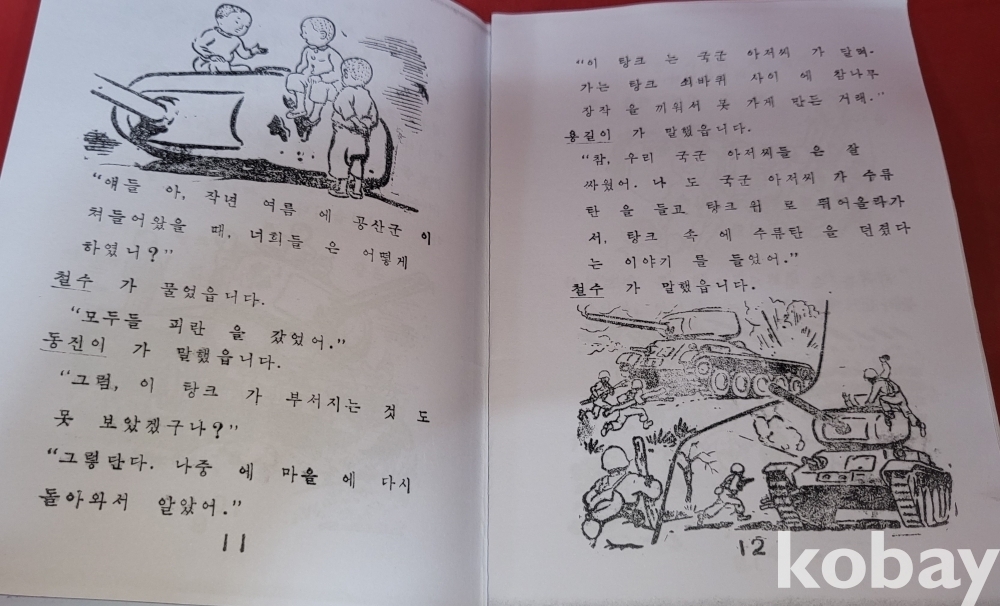 “얘들 아, 작년 여름 에 공산군 이
쳐들어왔을 때, 너희들 은 어떻게
하였니?”
철수 가 물었읍니다.
“모두들 피란 을 갔었어.”
동진이 가 말했읍니다.
“그럼, 이 탕크 가 부서지는 것 도
못 보았겠구나?”
“그렇단다. 나중 에 마을 에 다시
돌아와서 알았어.”
11
“이 탕크 는 국군 아저씨 가 달려.
가는 탕크 쇠바퀴 사이 에 참나무
장작 을 끼워서 못 가게 만든 거래.”
용길이 가 말했읍니다.
“참, 우리 국군 아저씨들 은 잘
싸웠어. 나 도 국군 아저씨 가 수류
탄 을 들고 탕크 위 로 뛰어올라가
서, 탕크 속 에 수류탄 을 던졌다
는 이야기 를 들었어.”
철수 가 말했읍니다.
12
kobay